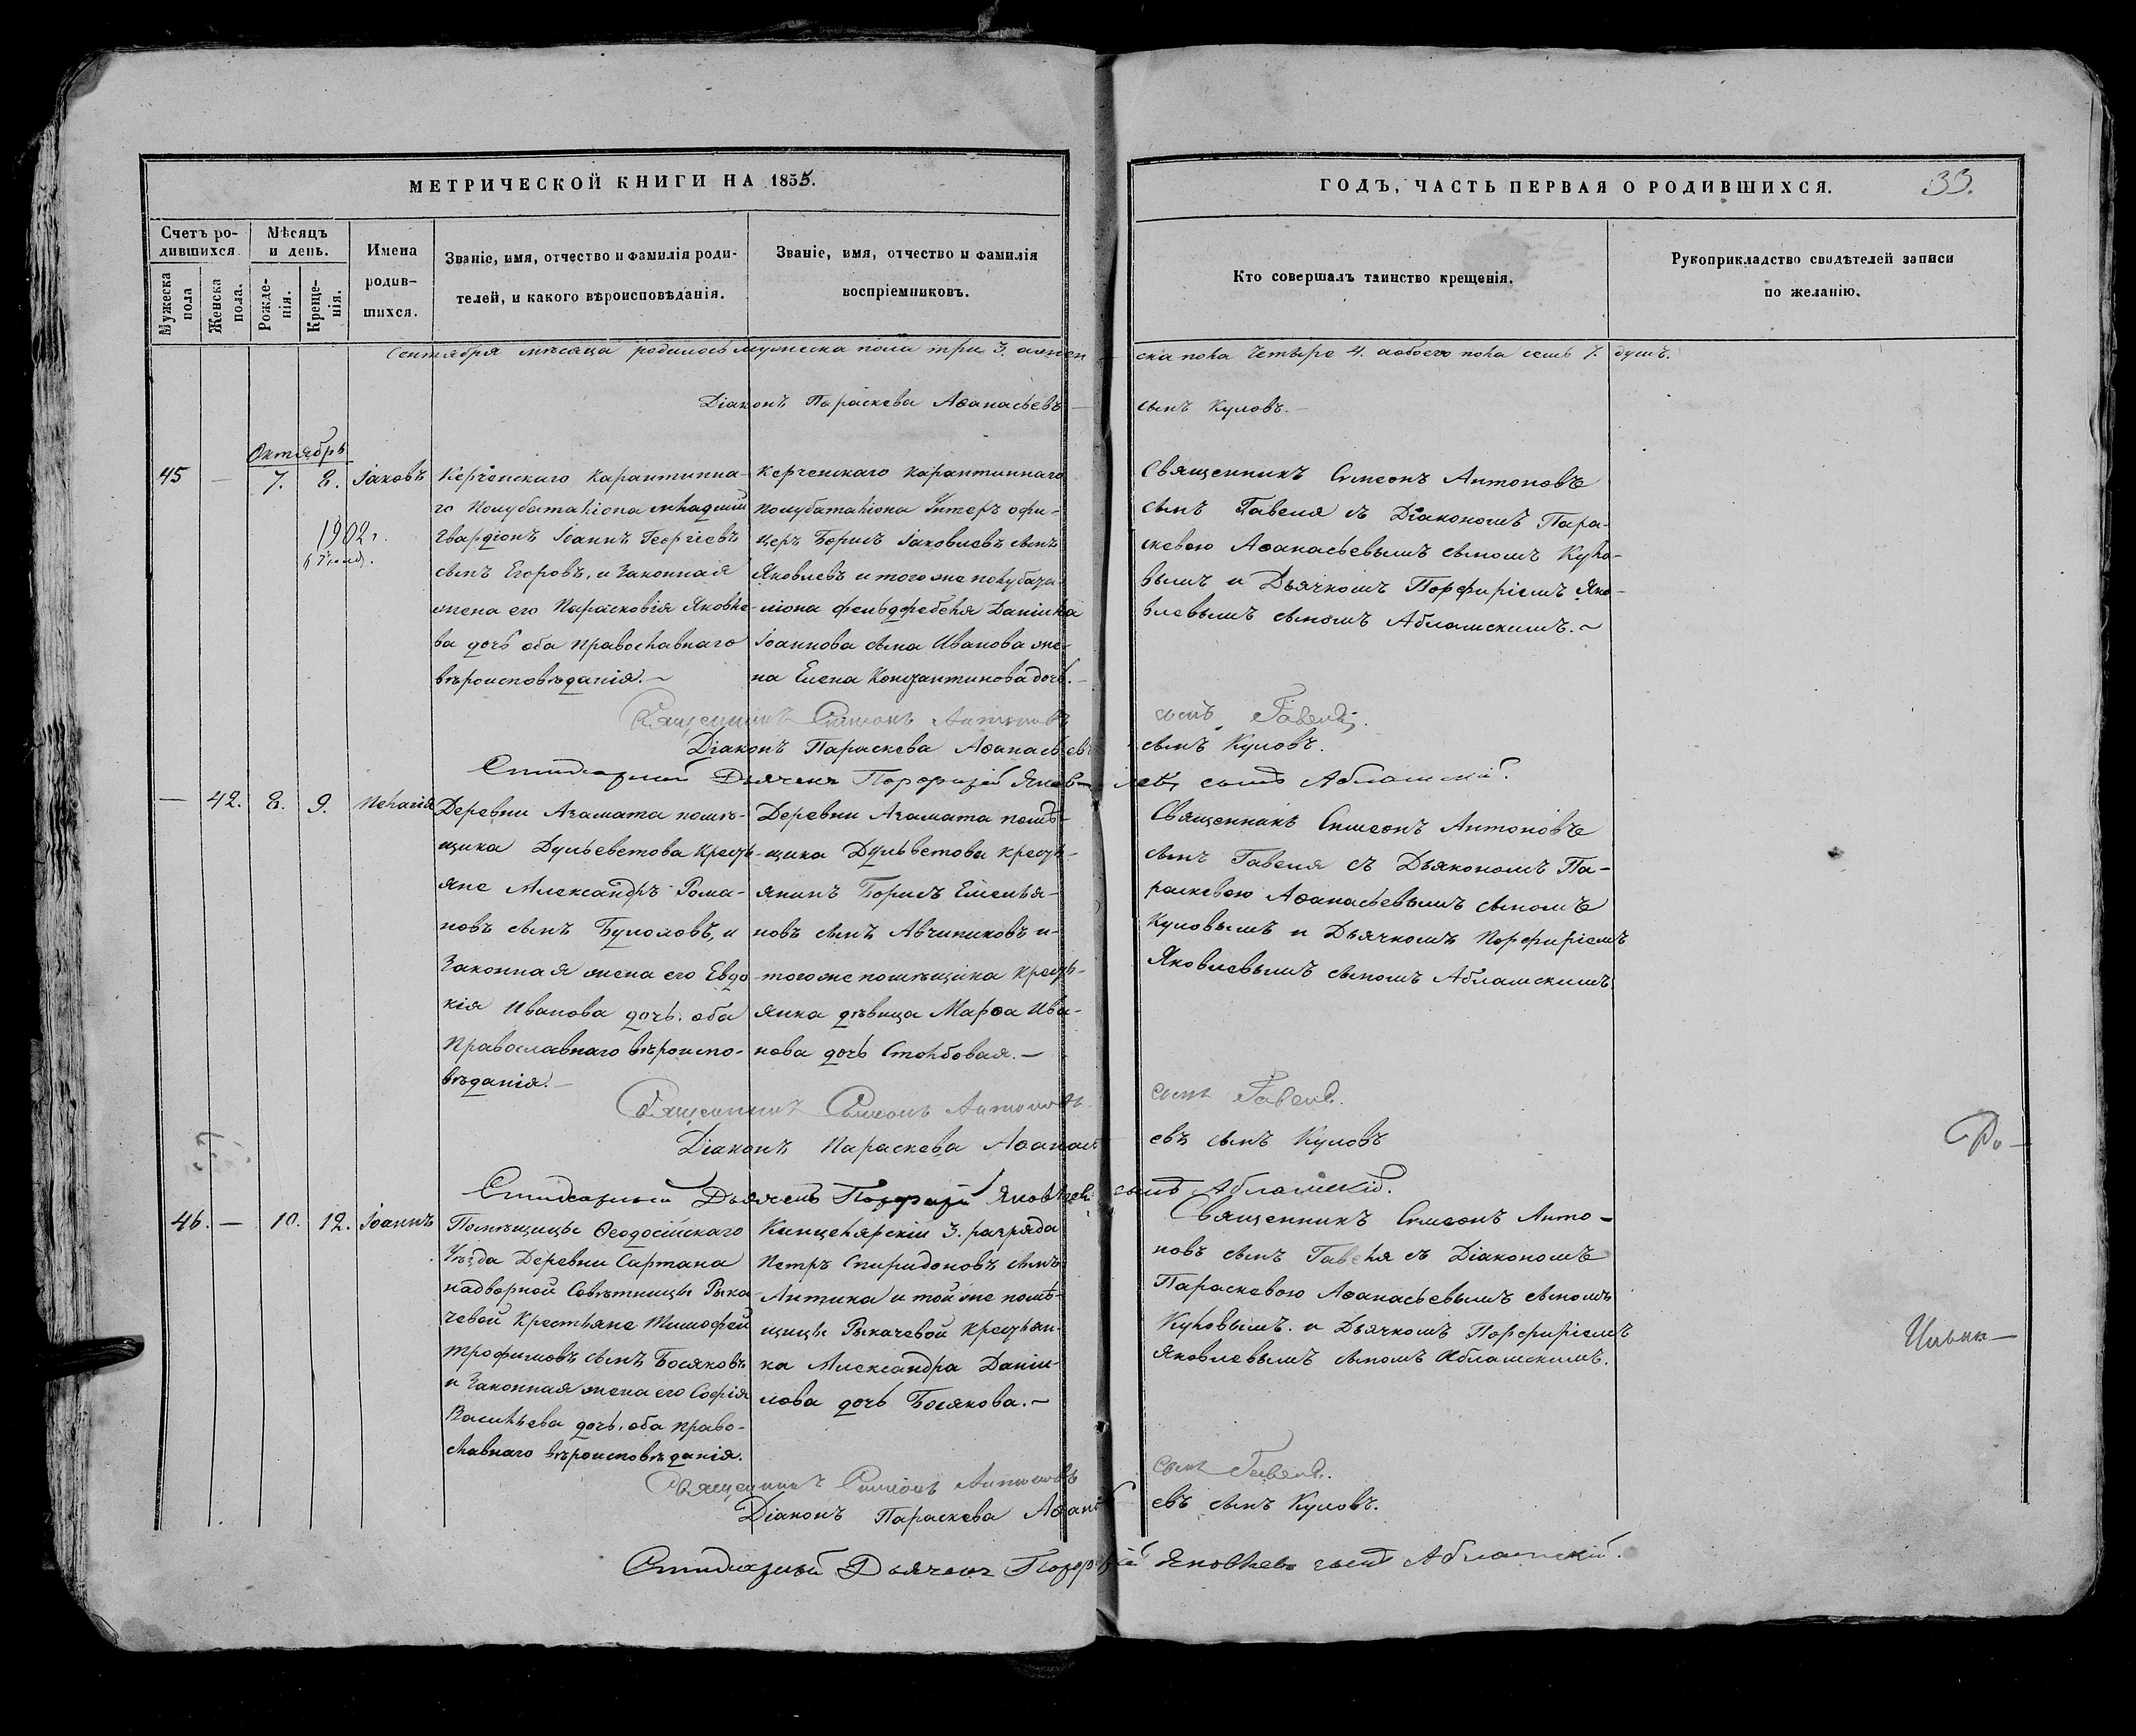 МЕТРИЧЕСКОЙ КНИГИ НА 1855.
ГОДЪ, ЧАСТЬ ПЕРВАЯ О РОДИВШИХСЯ.
33.
Счетъ ро-
дившихся.
Мужеска
пола
Женска
пола.
Мѣсяцъ
и день.
Рожде-
нія.
Креще-
нія.
Имена
родив-
шихся.
Званіе, имя, отчество и фамилія роди-
телей, и какого вѣроисповѣданія.
Званіе, имя, отчество и фамилія
воспріемниковъ.
Кто совершалъ таинство крещенія.
Рукоприкладство свидѣтелей записи
по желанію.
Сентября мѣсяца родилось мужеска пола три 3. а жен
ска пола четыре 4. а обоего пола семь 7. душъ.
Діаконъ Параскева Аѳанасьевъ
сынъ Куловъ.
Октябрь
45
—
7.
8.
Іаковъ
1902 г.
Керченскаго Карантинна-
го Полубаталіона младшій
Гвардіонъ Іоаннъ Георгіевъ
сынъ Егоровъ, и законная
жена его Парасковія Яковле-
ва дочь оба православнаго
вѣроисповѣданія.
Керченскаго карантиннаго
полубаталіона Унтеръ офи-
церъ Борисъ Іаковлевъ сынъ
Яковлевъ и того же полубата-
ліона фельдфебеля Даніила
Іоаннова сына Иванова же-
на Елена Константинова дочь.
Священникъ Симеонъ Антоновъ
сынъ Гавеля съ Діакономъ Пара-
скевою Аѳанасьевымъ сыномъ Куло-
вымъ и Дьячкомъ Порфиріемъ Яко-
влевымъ сыномъ Абламскимъ.
Священникъ Симеонъ Антоновъ
сынъ Гавеля.
Діаконъ Параскева Аѳанасьевъ
сынъ Куловъ.
Дьячекъ Порфирій Яков
левъ сынъ Абламскій.
—
42.
8.
9.
Пелагія
Деревни Агамата помѣ-
щика Дульветова кресть-
яне Александръ Рома-
новъ сынъ Буполовъ, и
Законная жена его Евдо-
кія Иванова дочь. оба
Православнаго вѣроиспо-
вѣданія.
Деревни Агамата помѣ-
щика Дульветова кресть-
янинъ Борисъ Емелья-
новъ сынъ Авчиниковъ и
того же помѣщика кресть-
янка дѣвица Марѳа Ива-
нова дочь Столбовая.
Священникъ Симеонъ Антоновъ
сынъ Гавеля съ Дьякономъ Па-
раскевою Аѳанасьевымъ сыномъ
Куловымъ и Дьячкомъ Порфиріемъ
Яковлевымъ сыномъ Абламскимъ.
Священникъ Симеонъ Антоновъ
сынъ Гавеля.
Діаконъ Параскева Аѳанась
евъ сынъ Куловъ
Дьячекъ Порфирій Яковлевъ
сынъ Абламскій.
46.
—
10.
12.
Іоаннъ
Помѣщицы Ѳеодосійскаго
Уѣзда Деревни Сартана
надворной Совѣтницы Рыка-
чевой Крестьяне Тимофей
Трофимовъ сынъ Босяковъ
и Законная жена его Софія
Васильева дочь. оба право-
славнаго вѣроисповѣданія.
Канцелярскій 3. разряда
Петръ Спиридоновъ сынъ
Антика и той же помѣ-
щицы Рыкачевой крестьян-
ка Александра Даніи-
лова дочь Босякова.
Священникъ Симеонъ Анто-
новъ сынъ Гавеля съ Діакономъ
Параскевою Аѳанасьевымъ сыномъ
Куловымъ. и Дьячкомъ Порфиріемъ
Яковлевымъ сыномъ Абламскимъ.
Священникъ Симеонъ Антоновъ
сынъ Гавеля.
Діаконъ Параскева Аѳанась
евъ сынъ Куловъ.
Дьячекъ Порфирій Яковлевъ сынъ Абламскій.